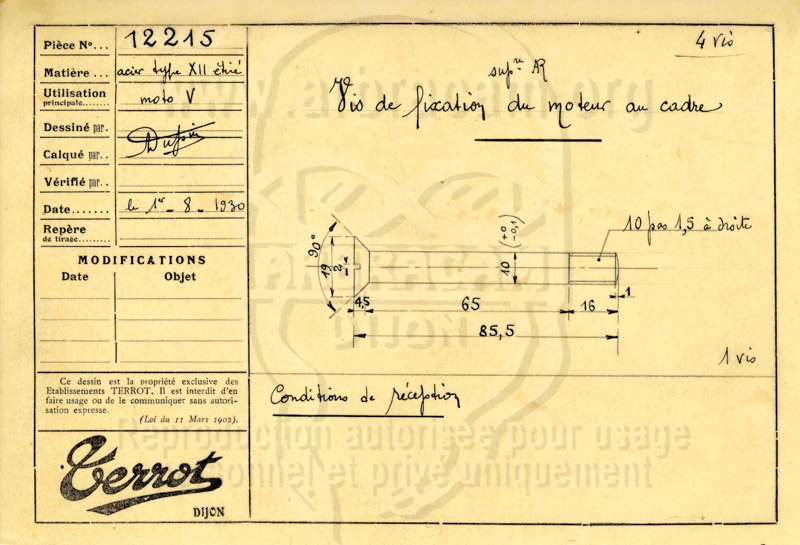 Pièce Nº... 12215
Matière... acier type XII étiré
Utilisation
principale........ moto V
Dessiné par.
Calqué par..
Vérifié par..
Date....... le 1er - 8 - 1930
Repère
de tirage........
MODIFICATIONS
Date Objet
Ce dessin est la propriété exclusive des
Etablissements TERROT. Il est interdit d'en
faire usage ou de le communiquer sans autori-
sation expresse.
(Loi du 11 Mars 1902).
Terrot
DIJON
4 vis
supre AR
Vis de fixation du moteur au cadre
10 pas 1,5 à droite
90°
19
2
10 (+0 -0,1)
4,5
65
16
1
85,5
1 vis
Conditions de réception
www.arbracam.org
ARBRACAM
DIJON
Reproduction autorisée pour usage
personnel et privé uniquement